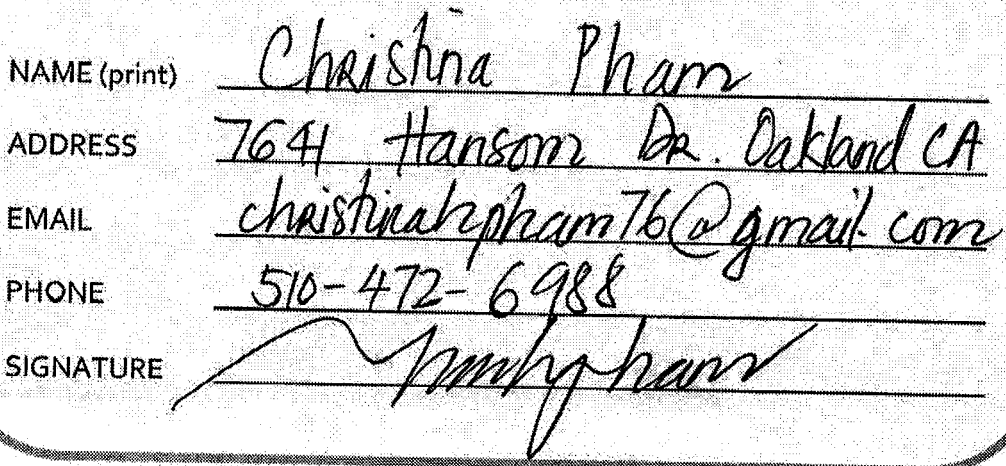 NAME (print) Christina Pham
ADDRESS 7641 Hansom DR. Oakland CA
EMAIL christinahpham76@gmail.com
PHONE 510-472-6988
SIGNATURE